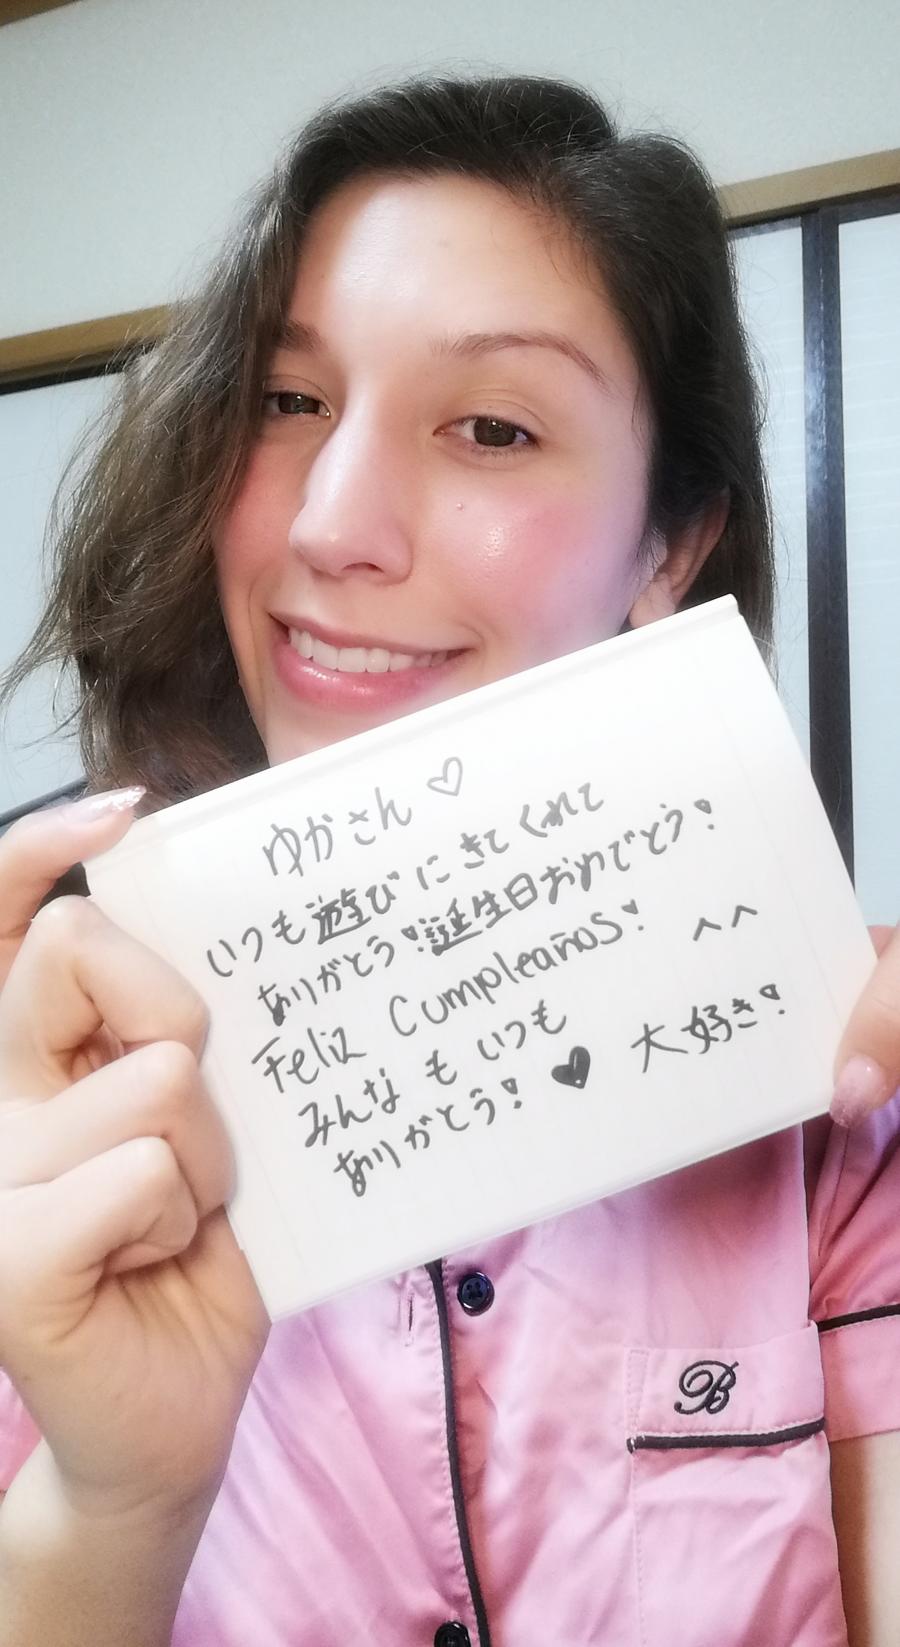 ゆかさん ♡
いつも遊びにきてくれて
ありがとう!誕生日おめでとう!
Feliz Cumpleaños! ^^
みんなもいつも
ありがとう! ♥ 大好き!
B